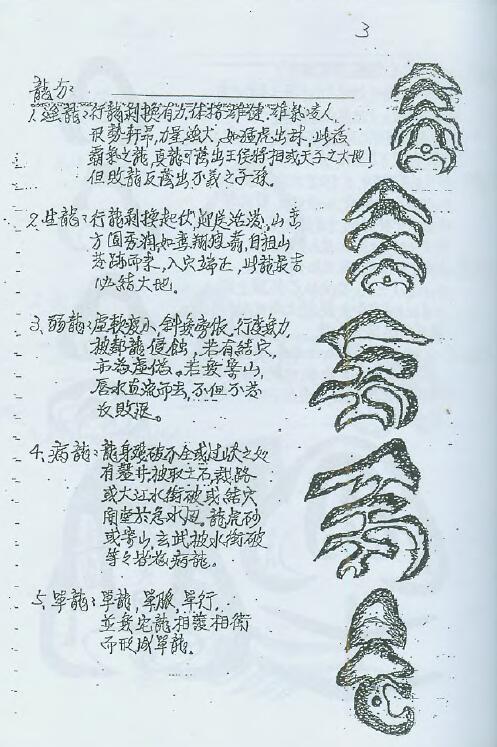 3
龍
1. 強龍：行龍剝換有力，体格雄健，雄氣凌人，
氣勢軒昂，力量強大，如猛虎出林，此為
霸氣之龍，真龍可蔭出王侯將相或天子之大地！
但敗龍反蔭出不義之子孫。
2. 生龍：行龍剝換起伏，山
方圓秀潤，如，自祖山
落脉而來，入穴端正，此龍最吉
必結大地。
3. 弱龍：虛軟，行度無力，
被龍侵蝕，若有結穴，
亦為虛偽。若無案山，
唇水直流而去，不但不發
反敗退。
4. 病龍：龍身殘破不全或過峽之处
有鑿井被取土石裁路
或大江水衝破或結穴
龍虎砂
或案山玄武被水衝破
等々皆為病龍。
5. 單龍：單龍，單脈，單行，
並無它龍相護相衛
而形成單龍。